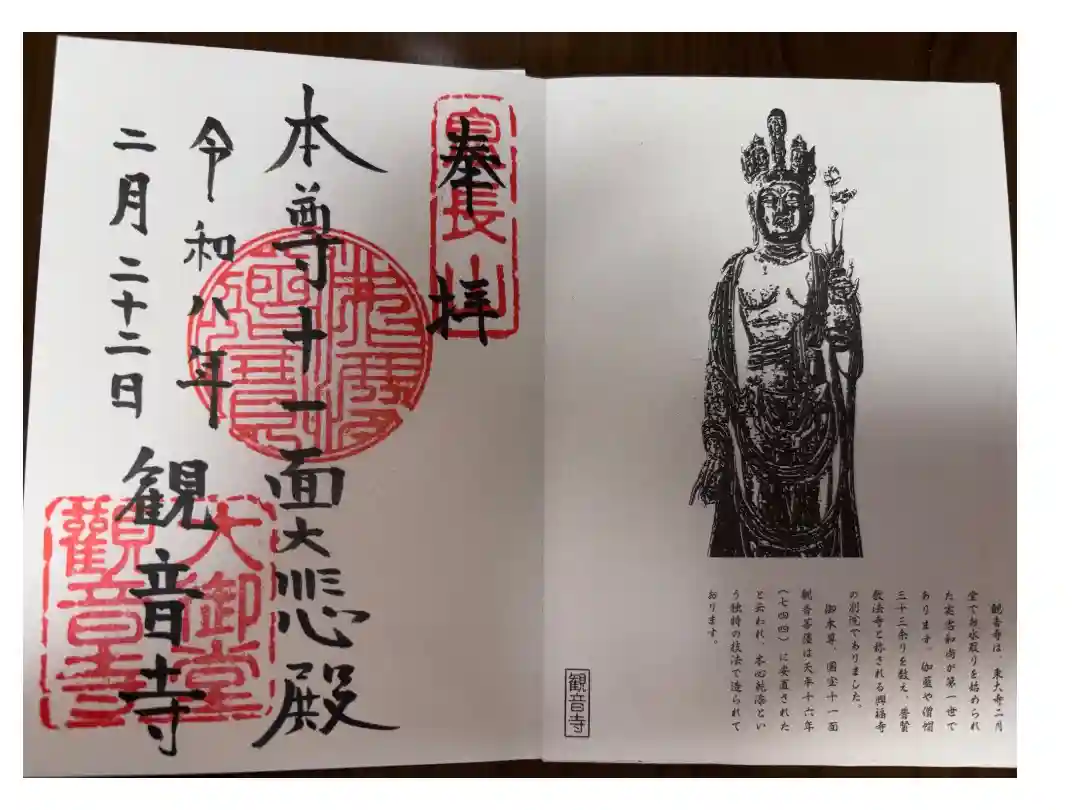 観音寺は、東大寺二月
堂でお水取りを始められ
た実忠和尚が第一世で
あります。伽藍や僧坊
三十三余りを数え、普賢
教法寺と称される興福寺
の別院でありました。
御本尊、国宝十一面
観音菩薩は天平十六年
（七四四）に安置された
と云われ、木心乾漆とい
う独特の技法で造られて
おります。
観音寺
奉拝
息長山
本尊十一面大悲殿
令和八年
二月二十二日
観音寺
大御堂
觀音寺